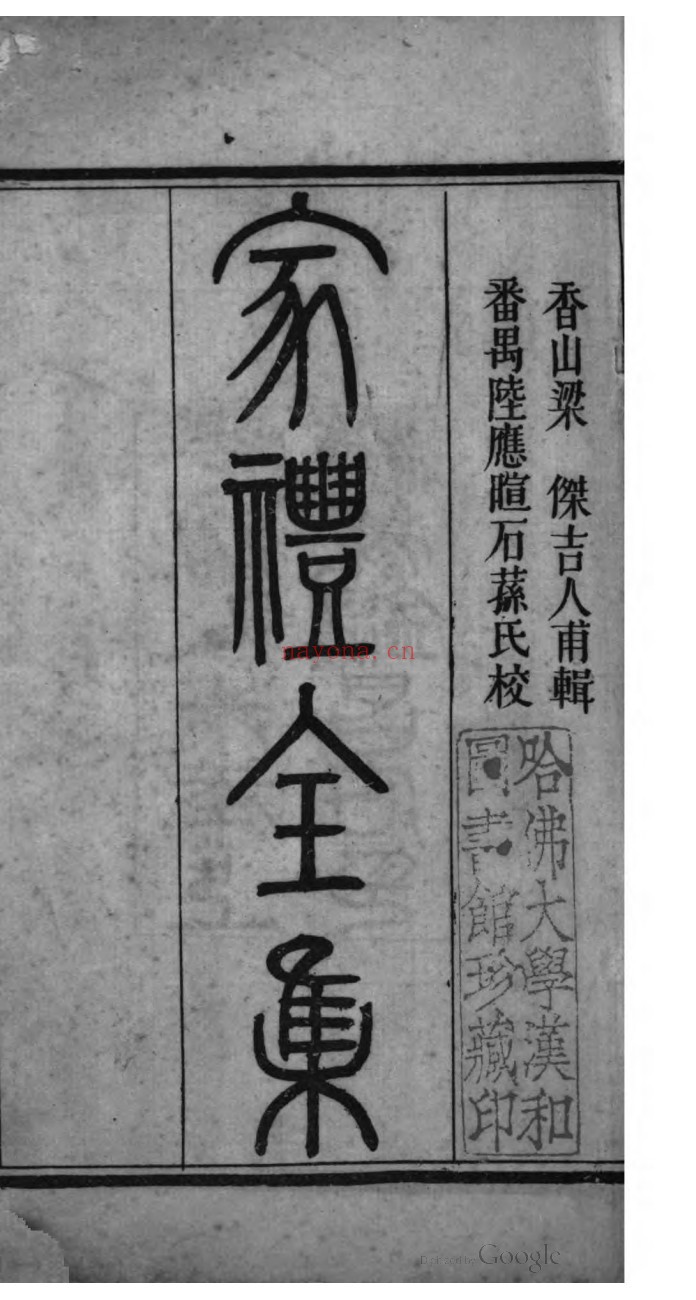 香山梁　傑吉人甫輯
番禺陸應暄石蓀氏校
家禮全集
哈佛大學漢和
圖書館珍藏印
nayona.cn
Digitized by Google